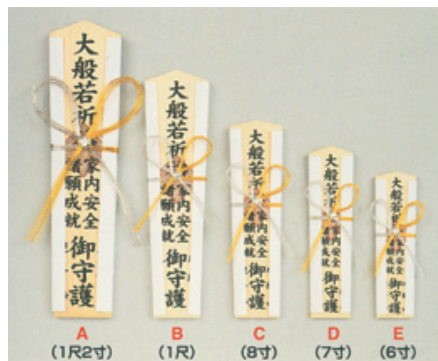 大般若祈
家内安全
諸願成就
御守護
大般若祈
家内安全
諸願成就
御守護
大般若祈
家内安全
諸願成就
御守護
大般若祈
家内安全
諸願成就
御守護
大般若祈
家内安全
諸願成就
御守護
A
(1尺2寸)
B
(1尺)
C
(8寸)
D
(7寸)
E
(6寸)